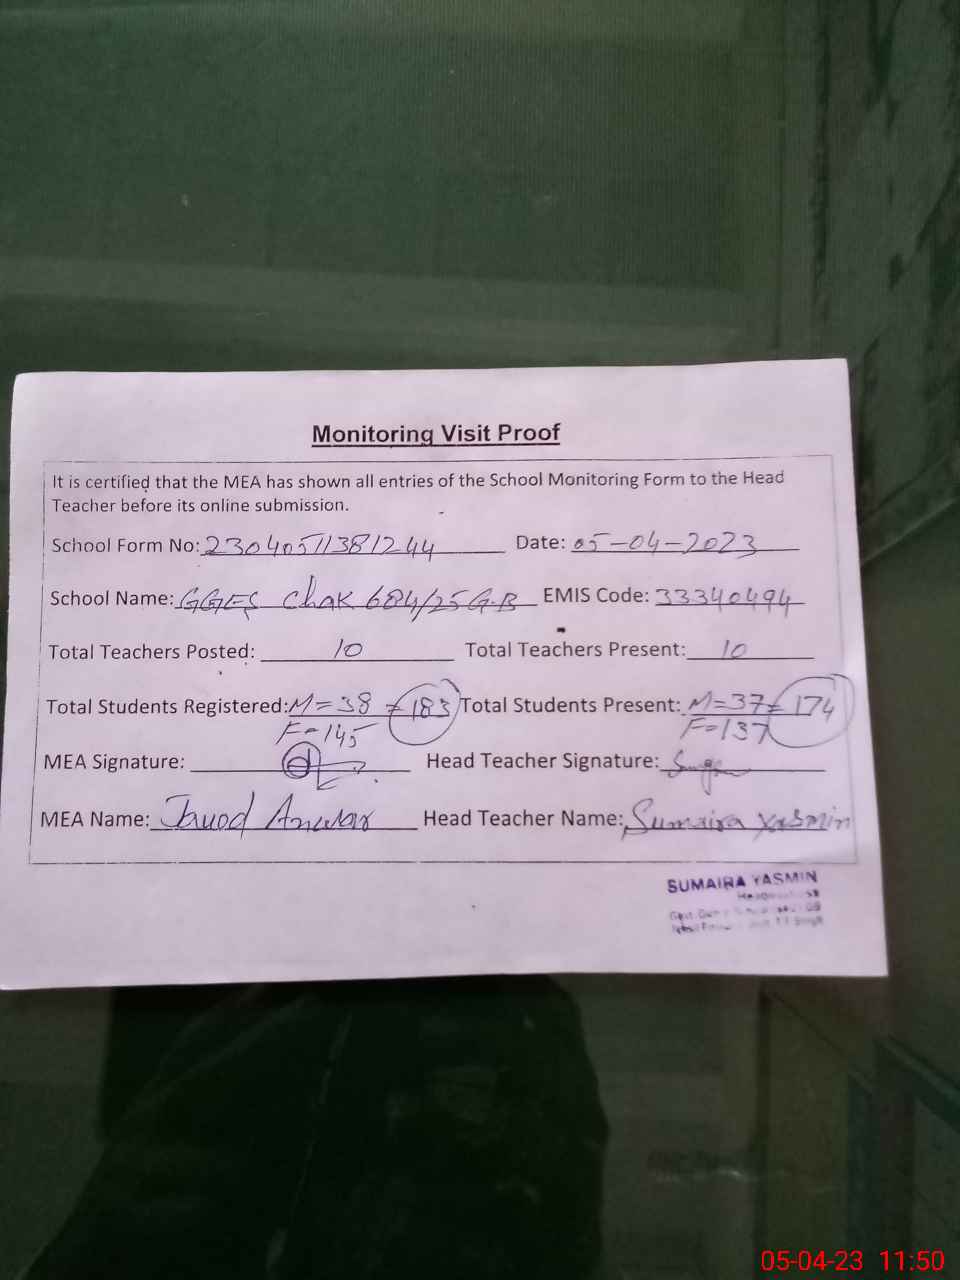 Monitoring Visit Proof
It is certified that the MEA has shown all entries of the School Monitoring Form to the Head
Teacher before its online submission.
School Form No: 23040511381244 Date: 05-04-2023
School Name: GGES Chak 684/25 G.B EMIS Code: 33340494
Total Teachers Posted: 10 Total Teachers Present: 10
Total Students Registered: M=38 = 183 Total Students Present: M=37 = 174
F=145 F=137
MEA Signature: Head Teacher Signature:
MEA Name: Javod Anwar Head Teacher Name: Sumaira Yasmin
SUMAIRA YASMIN
05-04-23 11:50